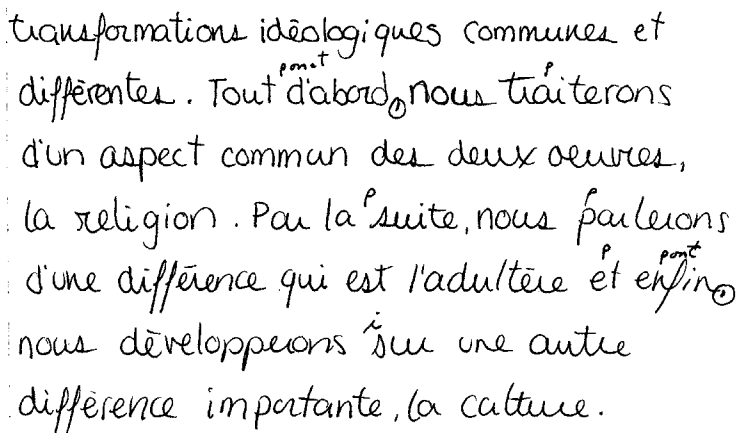 transformations idéologiques communes et
différentes. Tout d'abord, nous traiterons
d'un aspect commun des deux oeuvres,
la religion. Par la suite, nous parlerons
d'une différence qui est l'adultère et enfin,
nous développerons sur une autre
différence importante, la culture.